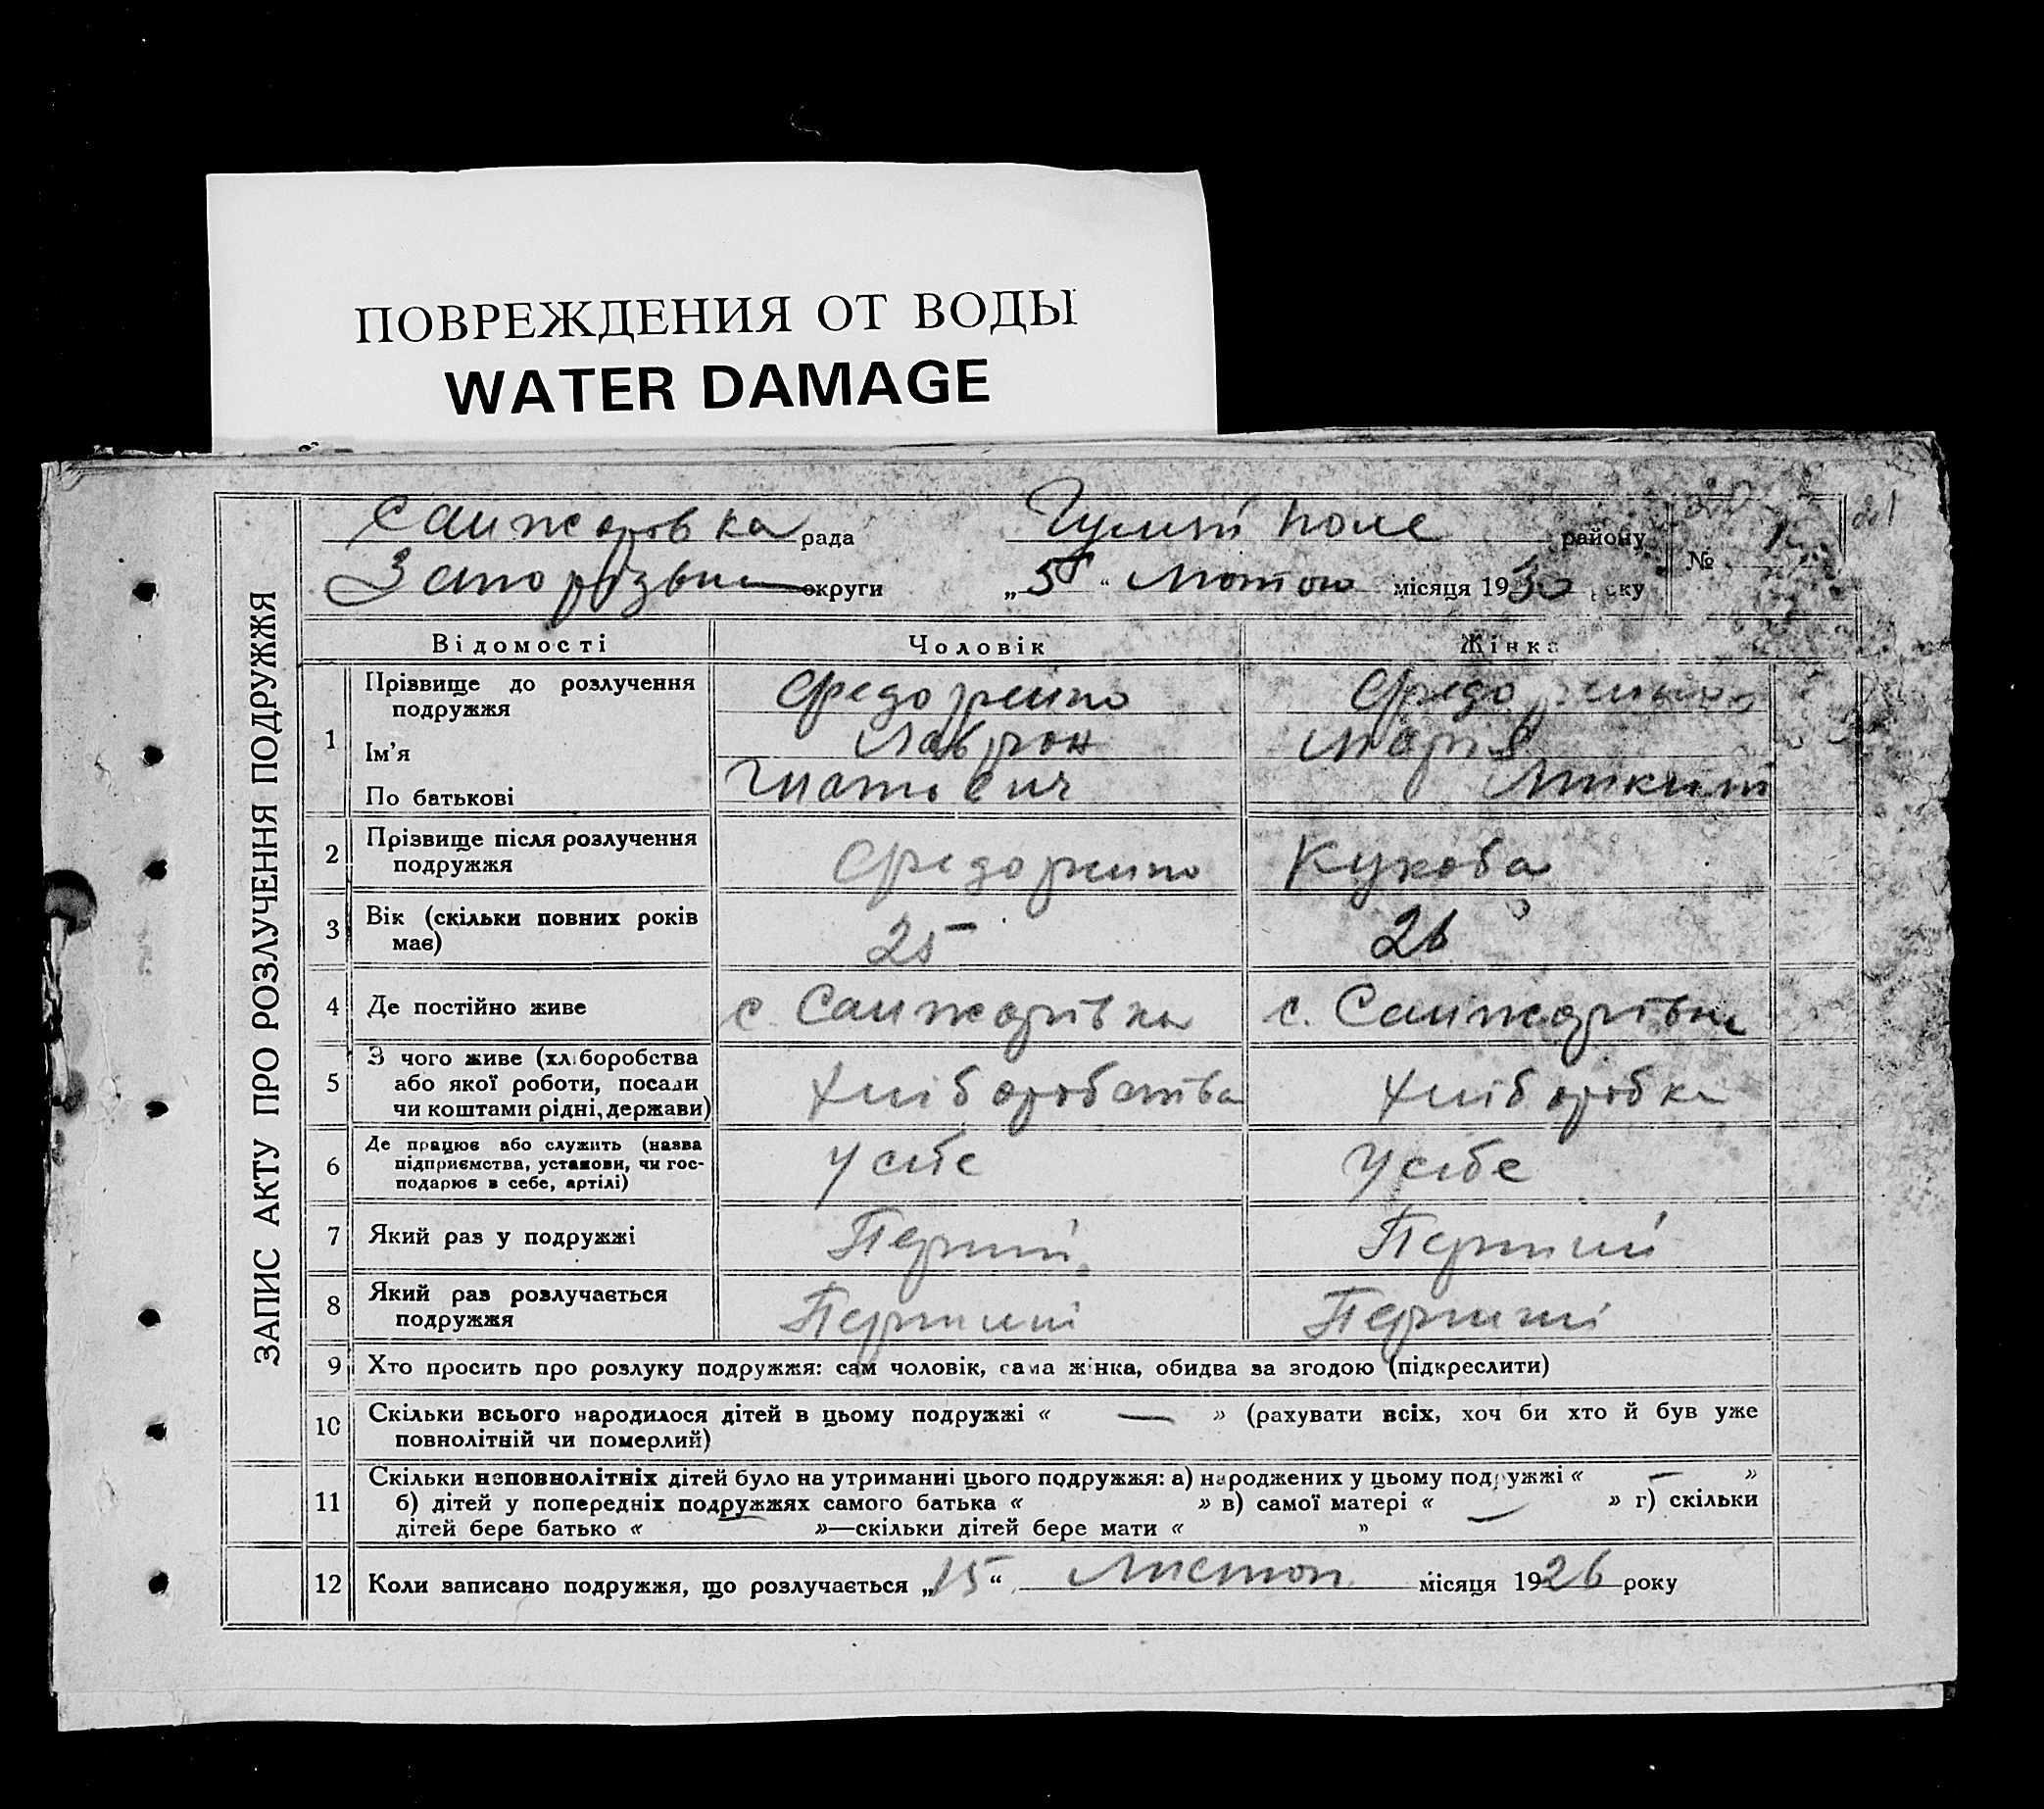 ПОВРЕЖДЕНИЯ ОТ ВОДЫ
WATER DAMAGE
ЗАПИС АКТУ ПРО РОЗЛУЧЕННЯ ПОДРУЖЖЯ
Санжаровка рада Гуляй поле району 20 21
округи „5“ Лютого місяця 1930 року №
Відомості Чоловік Жінка
1 Прізвище до розлучення подружжя Федоренко Федоренко
Ім'я Лаврон Марія
По батькові Гнатович
2 Прізвище після розлучення подружжя Федоренко
3 Вік (скільки повних років має) 25 26
4 Де постійно живе с. Санжарівка с. Санжарівка
5 З чого живе (хліборобства або якої роботи, посади чи коштами рідні, держави) Хліборобства Хліборобка
6 Де працює або служить (назва підприємства, установи, чи господарює в себе, артілі) У себе У себе
7 Який раз у подружжі Перший Перший
8 Який раз розлучається подружжя Перший Перший
9 Хто просить про розлуку подружжя: сам чоловік, сама жінка, обидва за згодою (підкреслити)
10 Скільки всього народилося дітей в цьому подружжі « — » (рахувати всіх, хоч би хто й був уже
повнолітній чи померлий)
11 Скільки неповнолітніх дітей було на утриманні цього подружжя: а) народжених у цьому подружжі « — »
б) дітей у попередніх подружжях самого батька « » в) самої матері « — » г) скільки
дітей бере батько « »—скільки дітей бере мати « »
12 Коли записано подружжя, що розлучається „15“ Листоп. місяця 1926 року